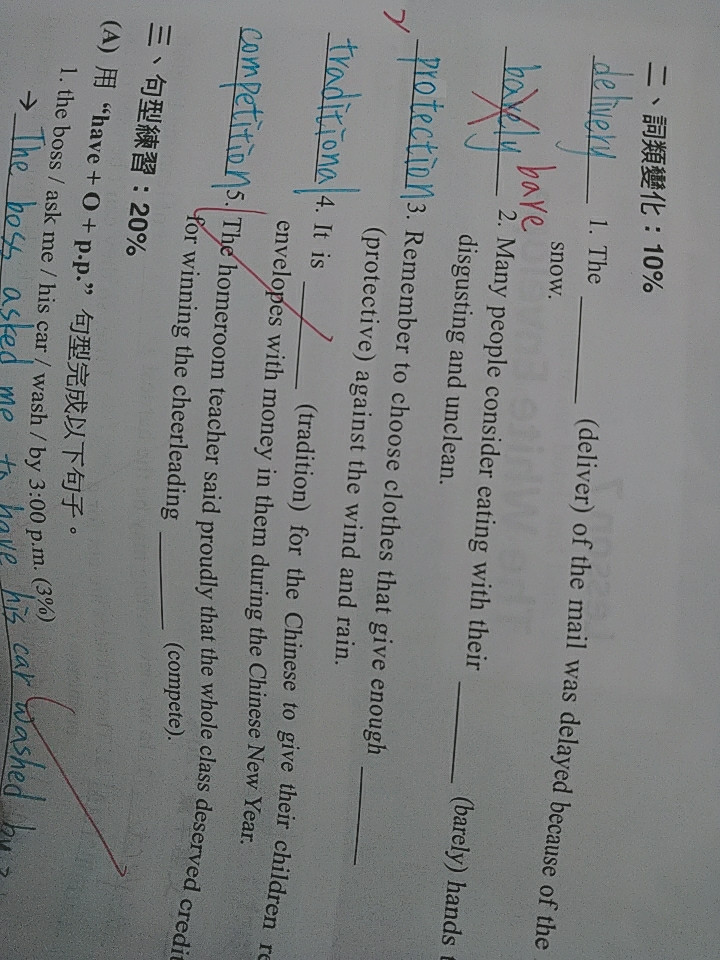 二、詞類變化：10%
delivery 1. The ________ (deliver) of the mail was delayed because of the
snow.
barely bare 2. Many people consider eating with their ________ (barely) hands
disgusting and unclean.
protection 3. Remember to choose clothes that give enough ________
(protective) against the wind and rain.
traditional 4. It is ________ (tradition) for the Chinese to give their children
envelopes with money in them during the Chinese New Year.
competition 5. The homeroom teacher said proudly that the whole class deserved credit
for winning the cheerleading ________ (compete).
三、句型練習：20%
(A) 用 “have + O + p.p.” 句型完成以下句子。
1. the boss / ask me / his car / wash / by 3:00 p.m. (3%)
→ The boss asked me to have his car washed by